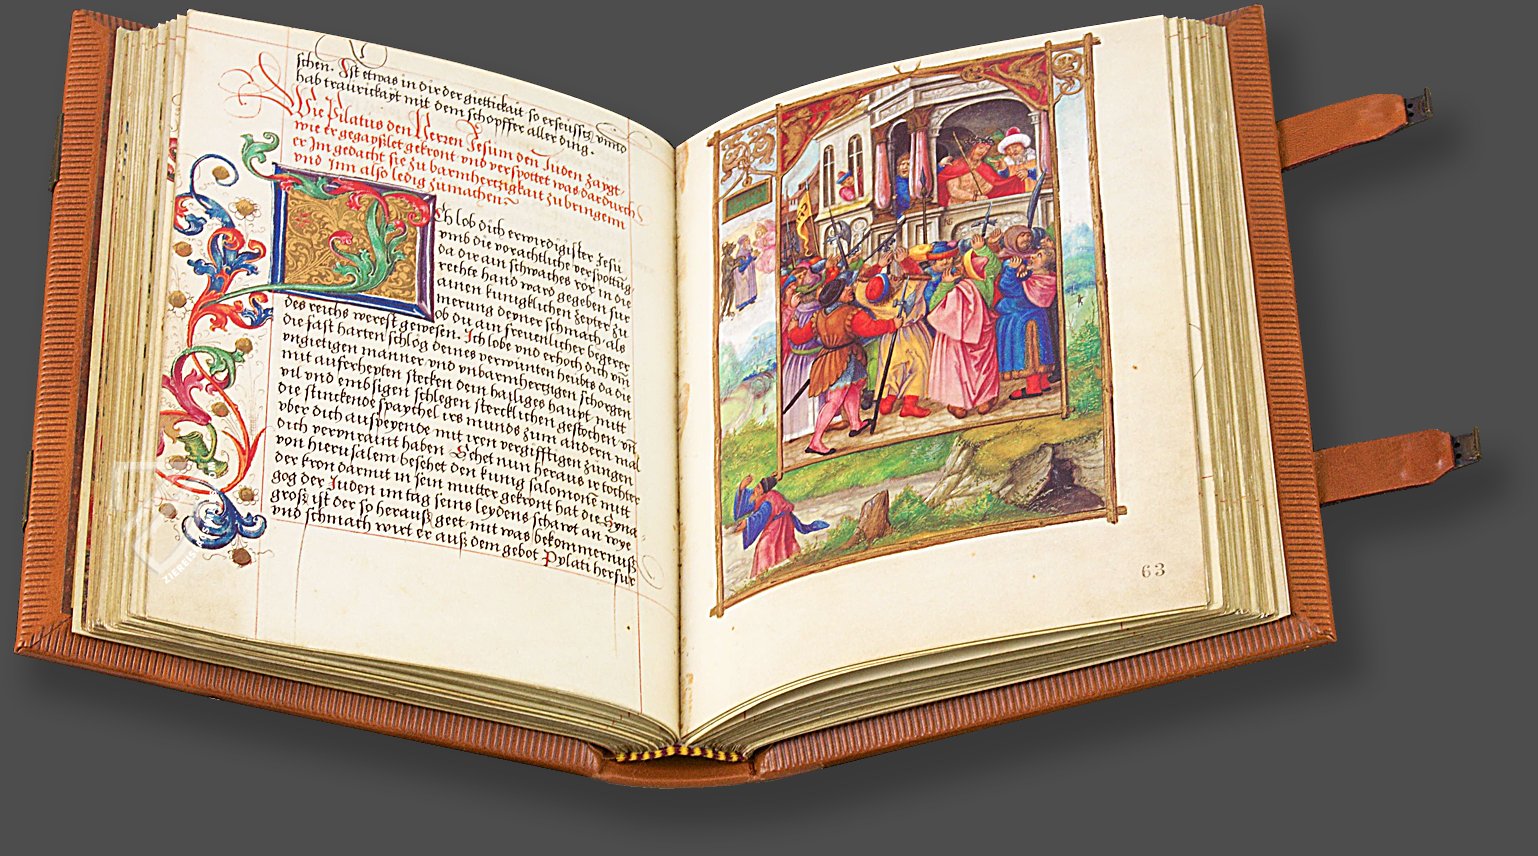 schen. Ist etwas in dir der giettickait so erseufftzg vnnd
hab traurickayt mit dem schöpffer aller ding.
Wie Pilatus den Herren Jesum den Juden zaygt
wie er gegaysslet gekront vnd verspottet was dardurch
er Im gedacht sie zu barmhertzigkait zubringenn
vnd Inn also ledig zumachen
Ich lob dich erwirdigister Jesu
vmb die vorachtliche verspottūg
da dir ain schwaches ror in die
rechte hand ward gegeben für
ainen kunigklichen zepter zu
merung deyner schmach/ als
ob du ain freuenlicher begerer
des reichs werest gewesen. Ich lobe vnd erhoch dich vm̄
die fast harten schlög deines verwunten heubts da die
vngietigen manner vnd vnbarmhertzigen schorgen
mit auferhepten stecken dein hailiges haupt mitt
vil vnd embsigen schlegen stercklichen gestochen vn̄
die stinckende spaychel irs munds zum andern mal
vber dich auspeyende mit iren vergifftigen zungen
dich verunraint haben Sehet nun heraus ir tochter
von hierusalem besehet den kunig salomone mitt
der kron darmit in sein mutter gekront hat die Syna
gog der Juden im tag seins leydens scharot an roye
groß ist der so herauß geet mit was bekommernuß
vnd schmach wirt er auß dem gebot Pylati herfur
63
ZIEREIS